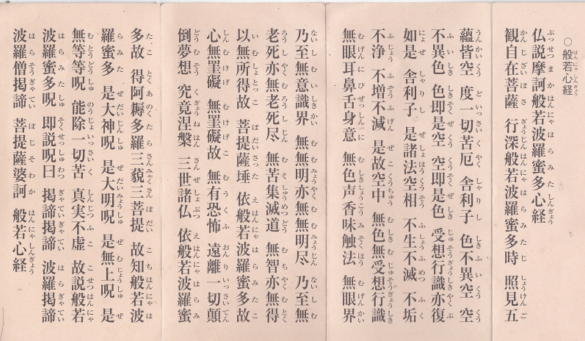 ○般若心経
仏説摩訶般若波羅蜜多心経
観自在菩薩 行深般若波羅蜜多時 照見五
蘊皆空 度一切苦厄 舎利子 色不異空 空
不異色 色即是空 空即是色 受想行識亦復
如是 舎利子 是諸法空相 不生不滅 不垢
不浄 不増不減 是故空中 無色無受想行識
無眼耳鼻舌身意 無色声香味触法 無眼界
乃至無意識界 無無明亦無無明尽 乃至無
老死亦無老死尽 無苦集滅道 無智亦無得
以無所得故 菩提薩埵 依般若波羅蜜多故
心無罣礙 無罣礙故 無有恐怖 遠離一切顛
倒夢想 究竟涅槃 三世諸仏 依般若波羅蜜
多故 得阿耨多羅三藐三菩提 故知般若波
羅蜜多 是大神呪 是大明呪 是無上呪 是
無等等呪 能除一切苦 真実不虚 故説般若
波羅蜜多呪 即説呪曰 掲諦掲諦 波羅掲諦
波羅僧掲諦 菩提薩婆訶 般若心経